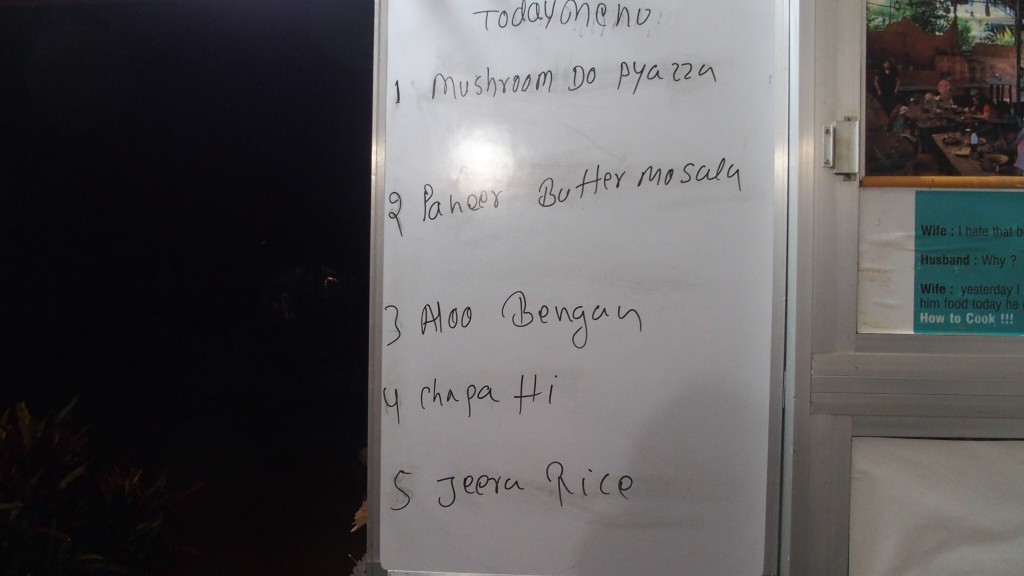 Today menu
1 Mushroom Do Pyazza
2 Paneer Butter Mosala
3 Aloo Bengan
4 Chapatti
5 Jeera Rice
Wife : I hate that b
Husband : Why ?
Wife : yesterday I
him food today he
How to Cook !!!